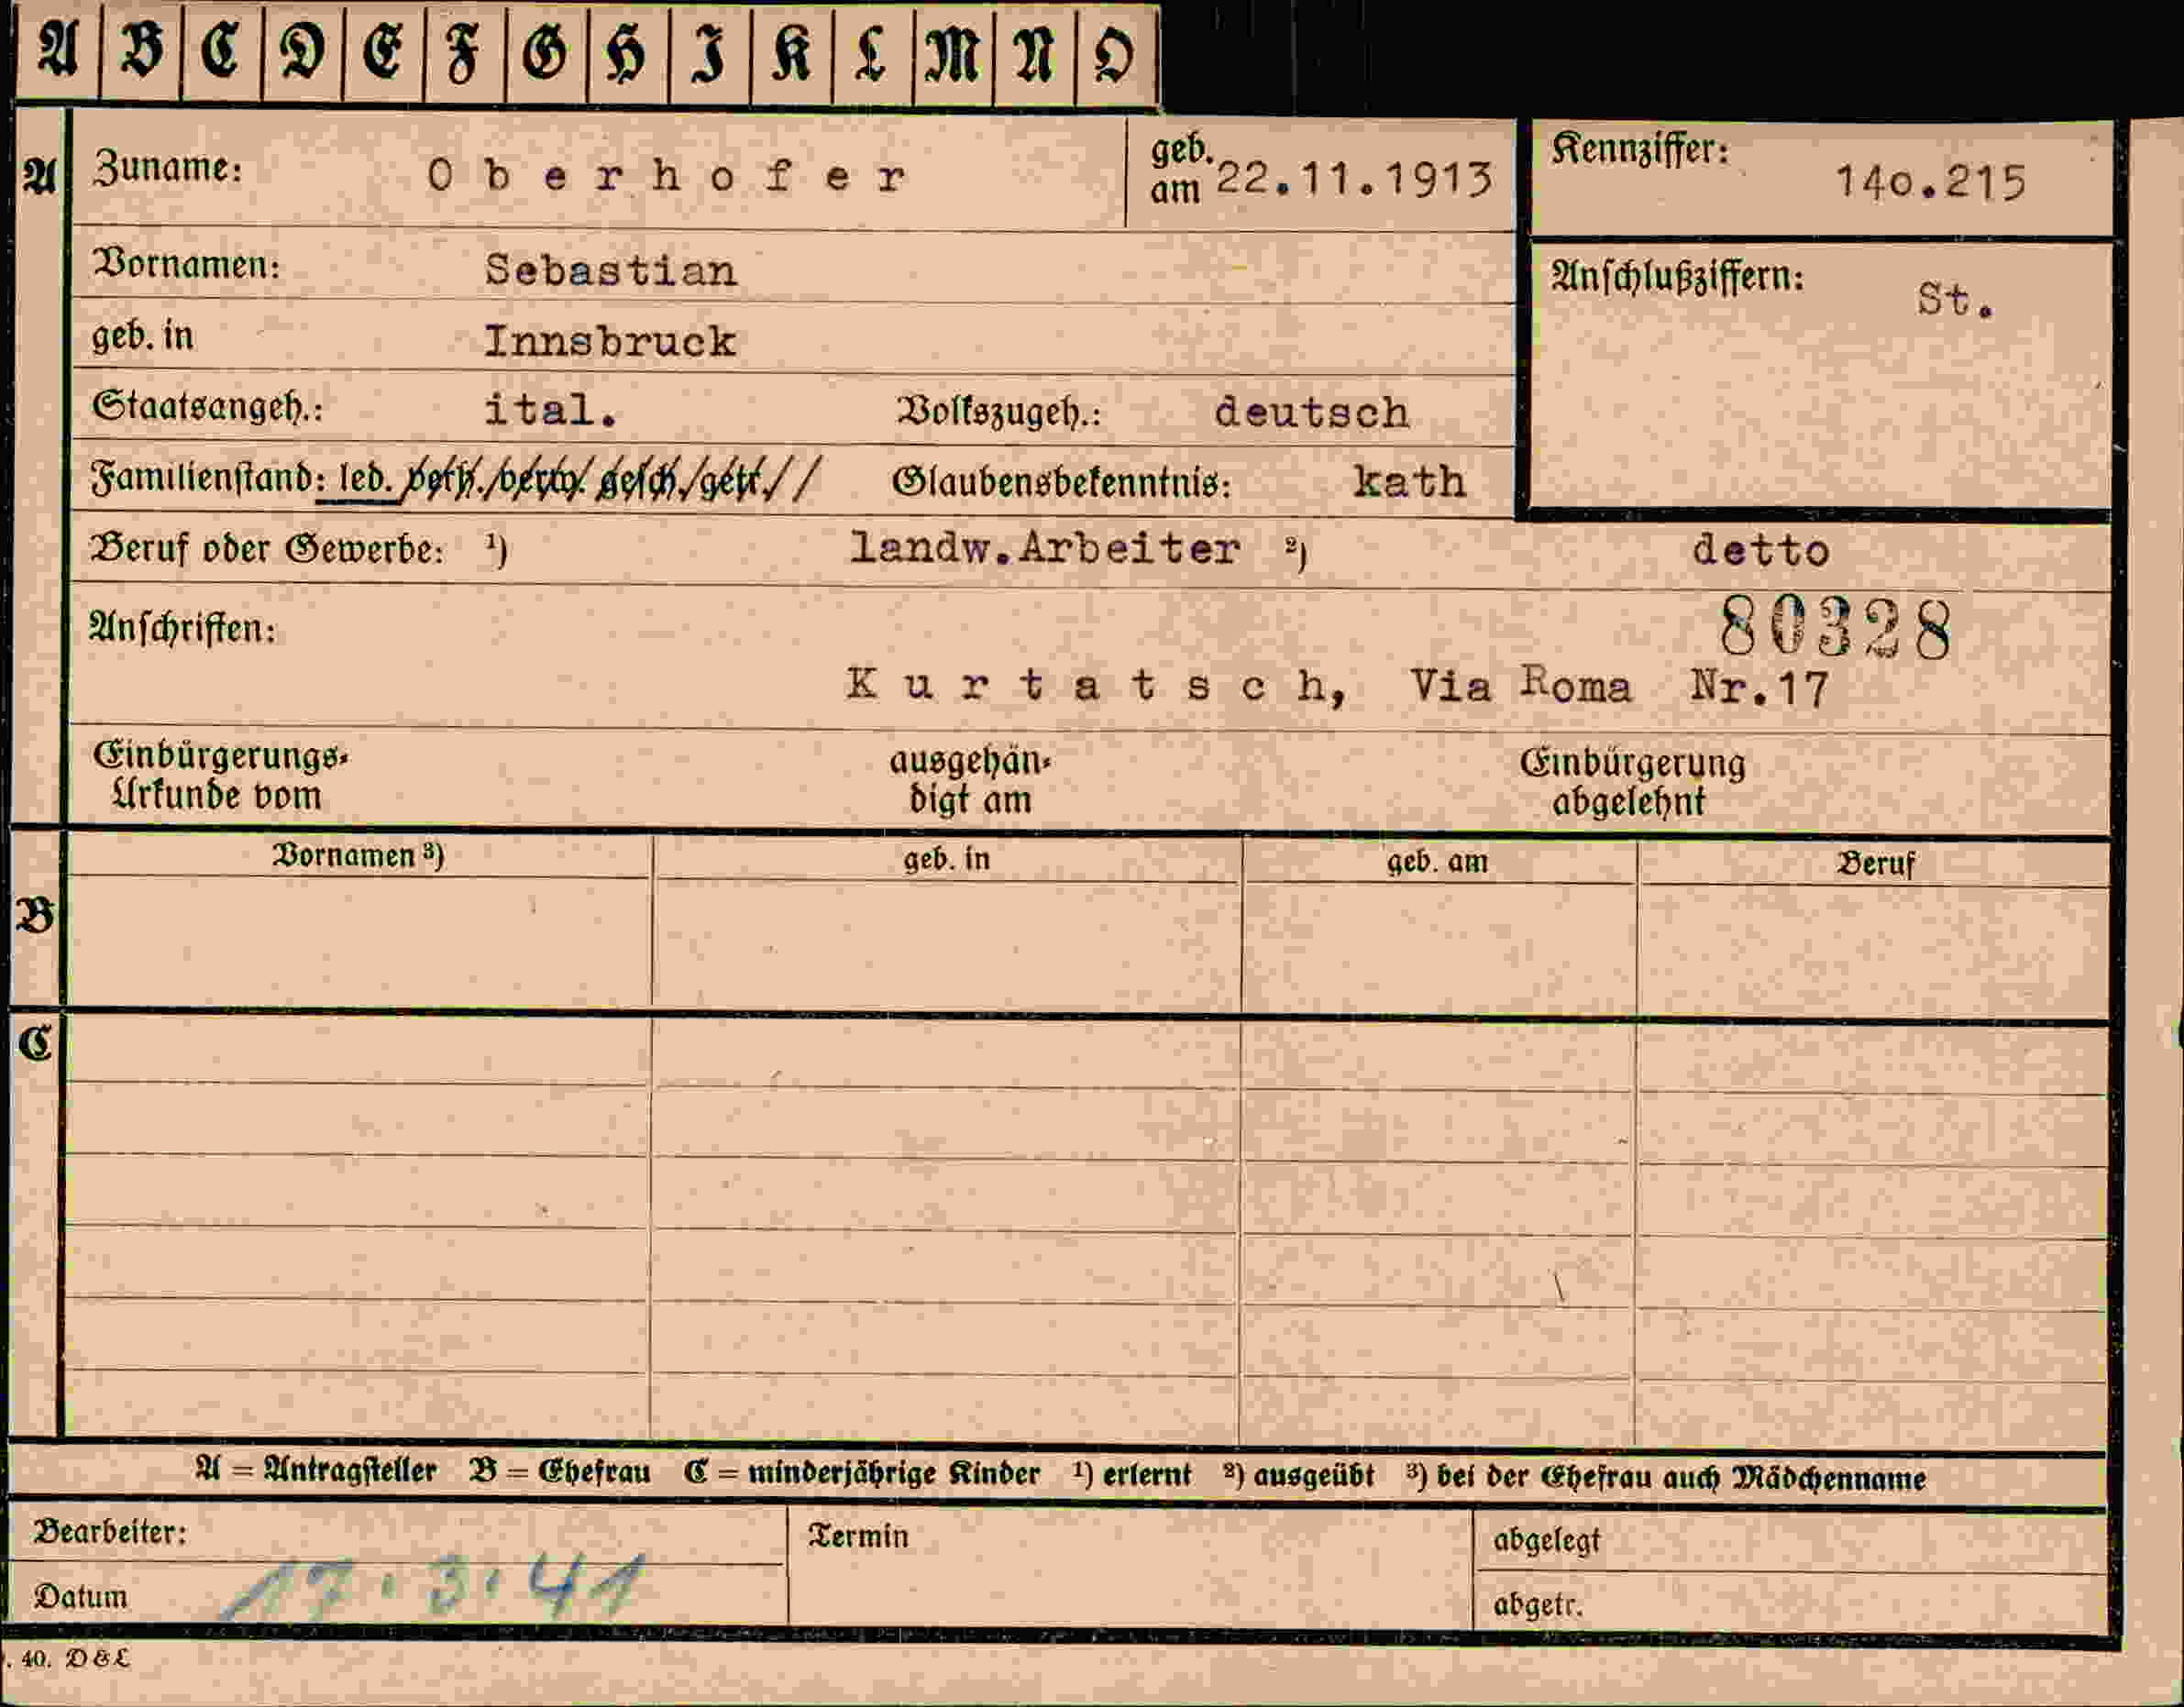 A B C D E F G H I K L M N O
A Zuname: Oberhofer geb. am 22.11.1913 Kennziffer: 14o.215
Vornamen: Sebastian Anschlußziffern: St.
geb. in Innsbruck
Staatsangeh.: ital. Volkszugeh.: deutsch
Familienstand: led. verh./verw./gesch./getr./ Glaubensbekenntnis: kath
Beruf oder Gewerbe: ¹) landw.Arbeiter ²) detto
Anschriften: 80328
Kurtatsch, Via Roma Nr.17
Einbürgerungs- ausgehän- Einbürgerung
Urkunde vom digt am abgelehnt
Vornamen ³) geb. in geb. am Beruf
B
C
A = Antragsteller B = Ehefrau C = minderjährige Kinder ¹) erlernt ²) ausgeübt ³) bei der Ehefrau auch Mädchenname
Bearbeiter: Termin abgelegt
Datum 17.3.41 abgetr.
. 40. D&L